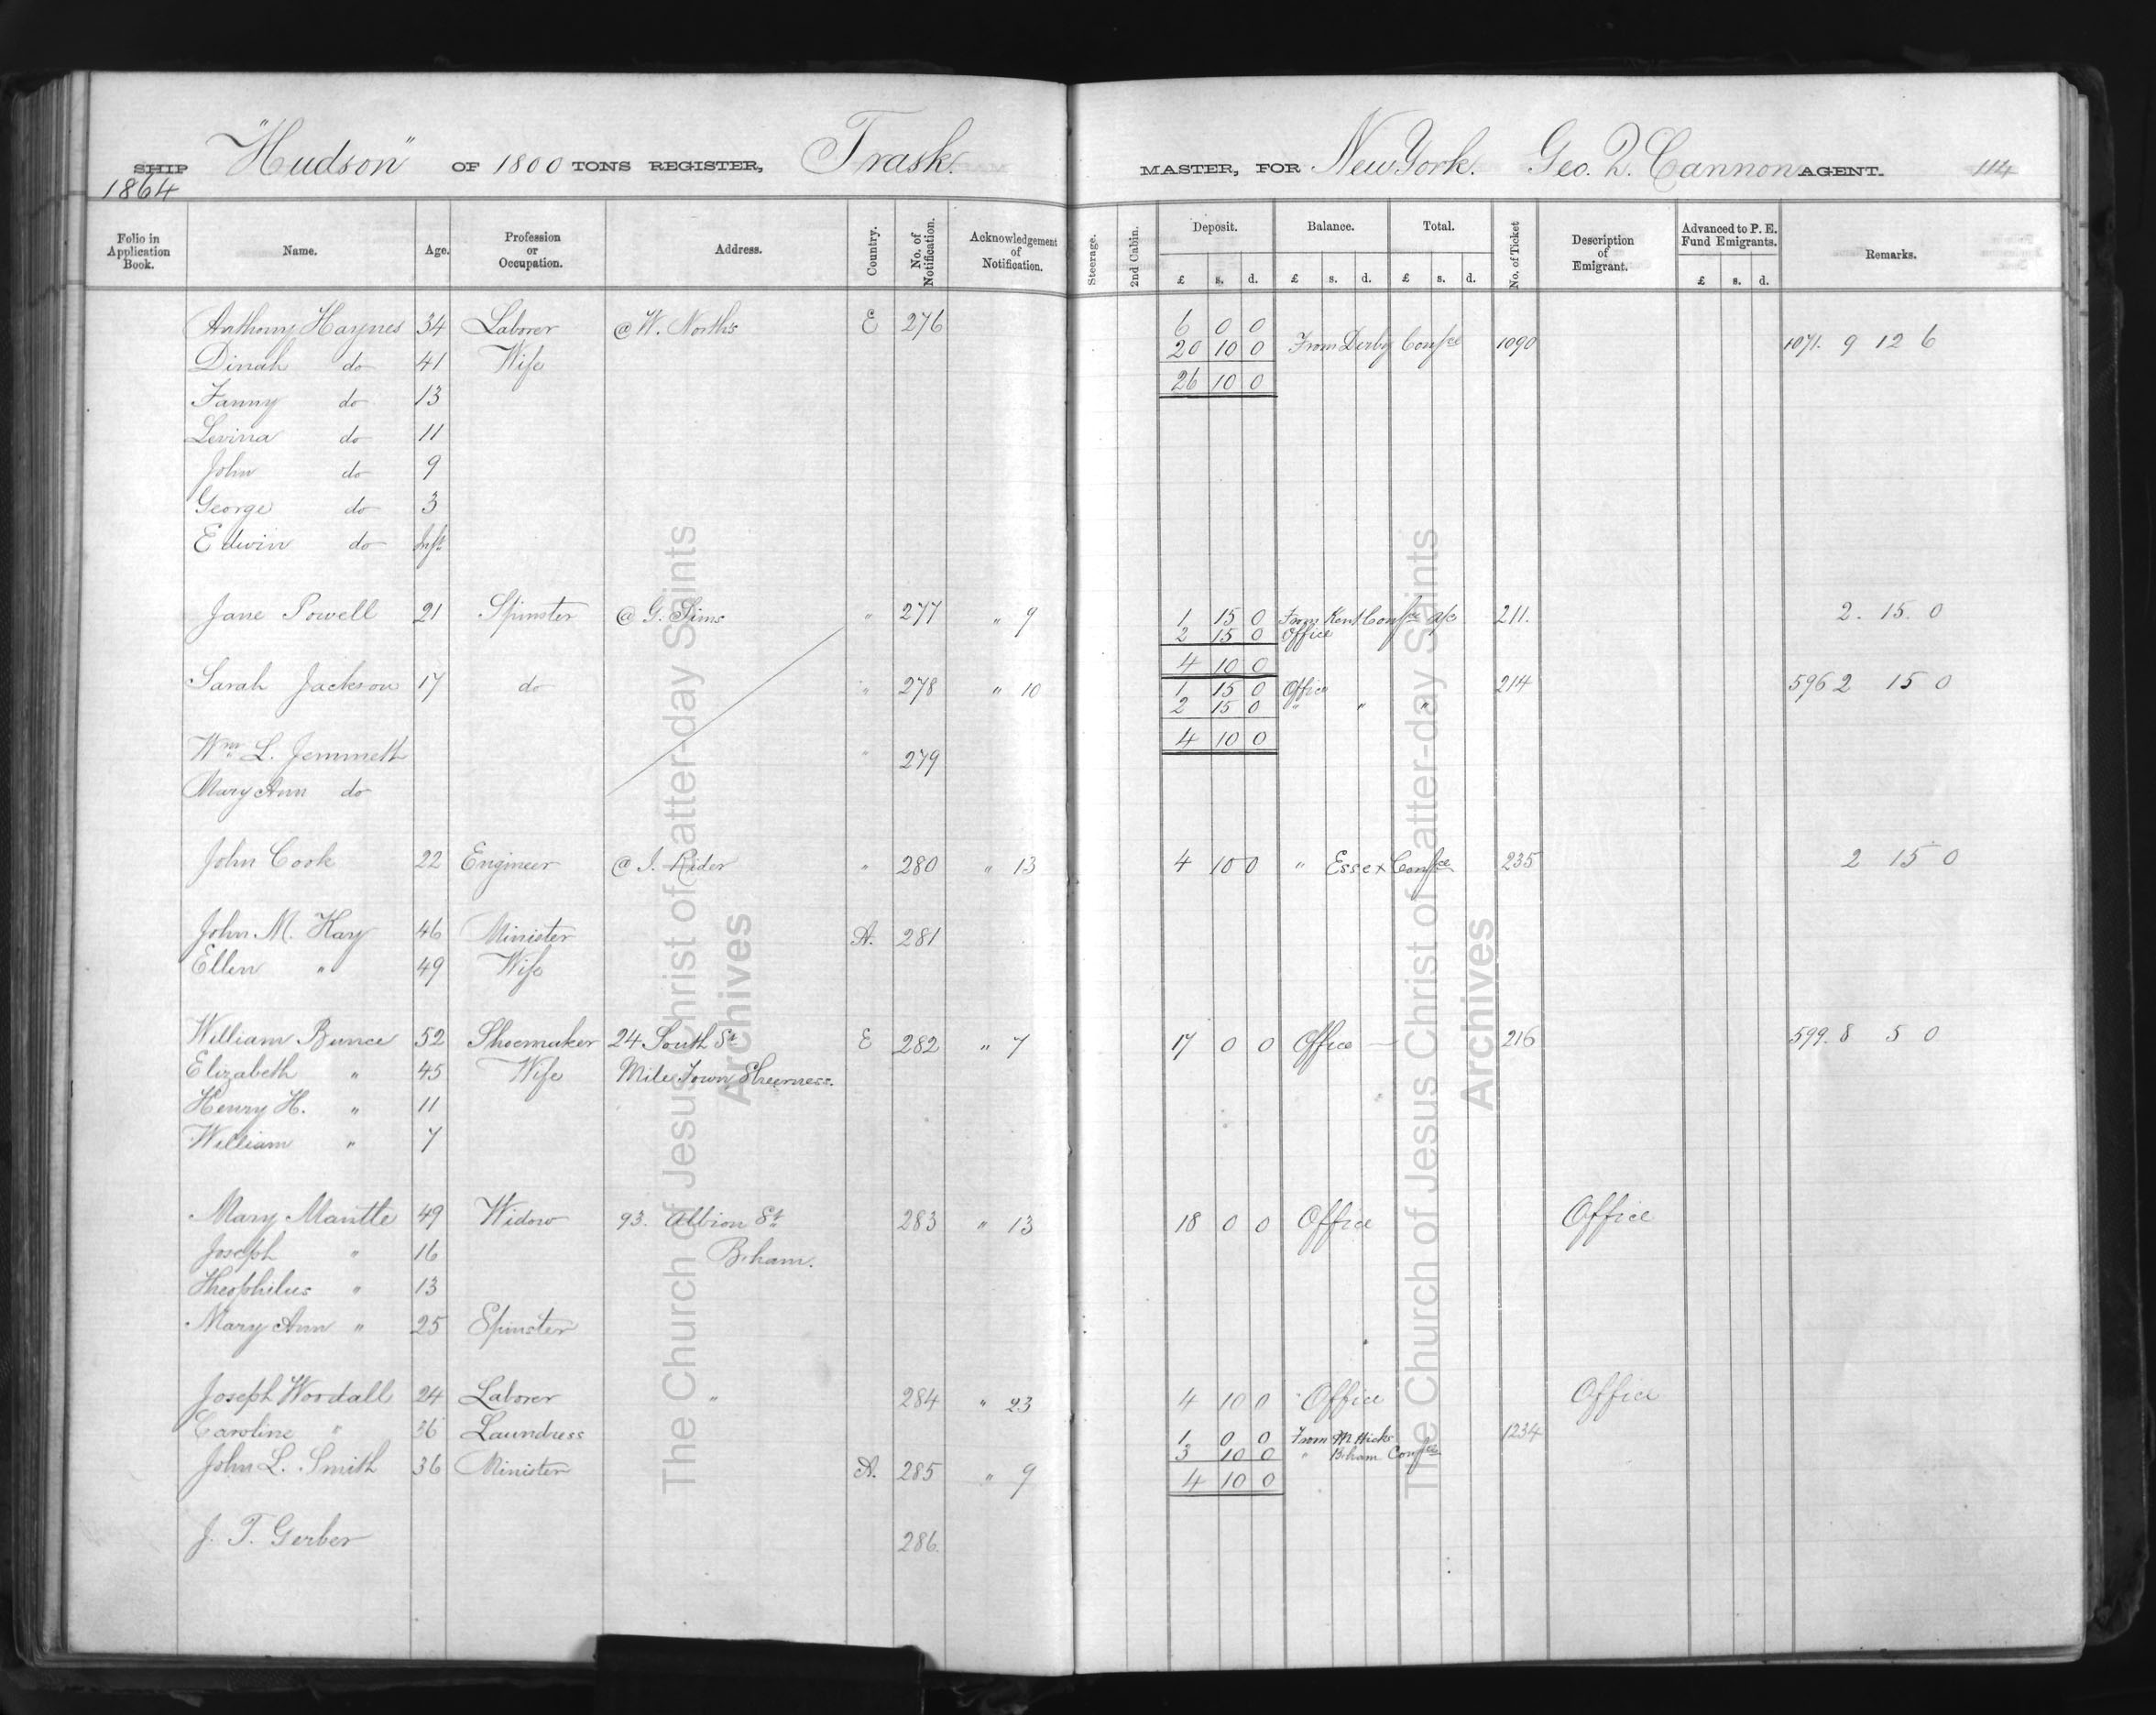 SHIP "Hudson" OF 1800 TONS REGISTER, Trask. MASTER, FOR New York. Geo. Q. Cannon AGENT. 114
1864
Folio in Application Book. Name. Age. Profession or Occupation. Address. Country. No. of Notification. Acknowledgement of Notification. Steerage. 2nd Cabin. Deposit. £ s. d. Balance. £ s. d. Total. £ s. d. No. of Ticket Description of Emigrant. Advanced to P. E. Fund Emigrants. £ s. d. Remarks.
Anthony Haynes 34 Laborer @ W. North's E 276 6 0 0
20 10 0 From Derby Confce 1090 1071. 9 12 6
Dinah do 41 Wife
26 10 0
Fanny do 13
Levina do 11
John do 9
George do 3
Edwin do Inft
Jane Powell 21 Spinster @ G. Sims " 277 " 9 1 15 0 From Kent Confce a/c 211. 2. 15. 0
2 15 0 Office
4 10 0
Sarah Jackson 17 do " 278 " 10 1 15 0 Office 214 596 2 15 0
2 15 0 " " "
4 10 0
Wm. L. Jemmett " 279
Mary Ann do
John Cook 22 Engineer @ J. Rider " 280 " 13 4 10 0 " Essex Confce 235 2 15 0
John M. Kay 46 Minister A. 281
Ellen " 49 Wife
William Bunce 52 Shoemaker 24 South St E 282 " 7 17 0 0 Office — 216 599. 8 5 0
Elizabeth " 45 Wife Mile Town Sheerness.
Henry H. " 11
William " 7
Mary Mantle 49 Widow 93. Albion St. 283 " 13 18 0 0 Office Office
Joseph " 16 B.ham.
Theophilus " 13
Mary Ann " 25 Spinster
Joseph Woodall 24 Laborer " 284 " 23 4 10 0 Office Office
Caroline " 36 Laundress 1 0 0 From M Hicks 1234
3 10 0 " B.ham Confce
John L. Smith 36 Minister A. 285 " 9 4 10 0
J. T. Gerber 286.
The Church of Jesus Christ of Latter-day Saints
Archives
The Church of Jesus Christ of Latter-day Saints
Archives